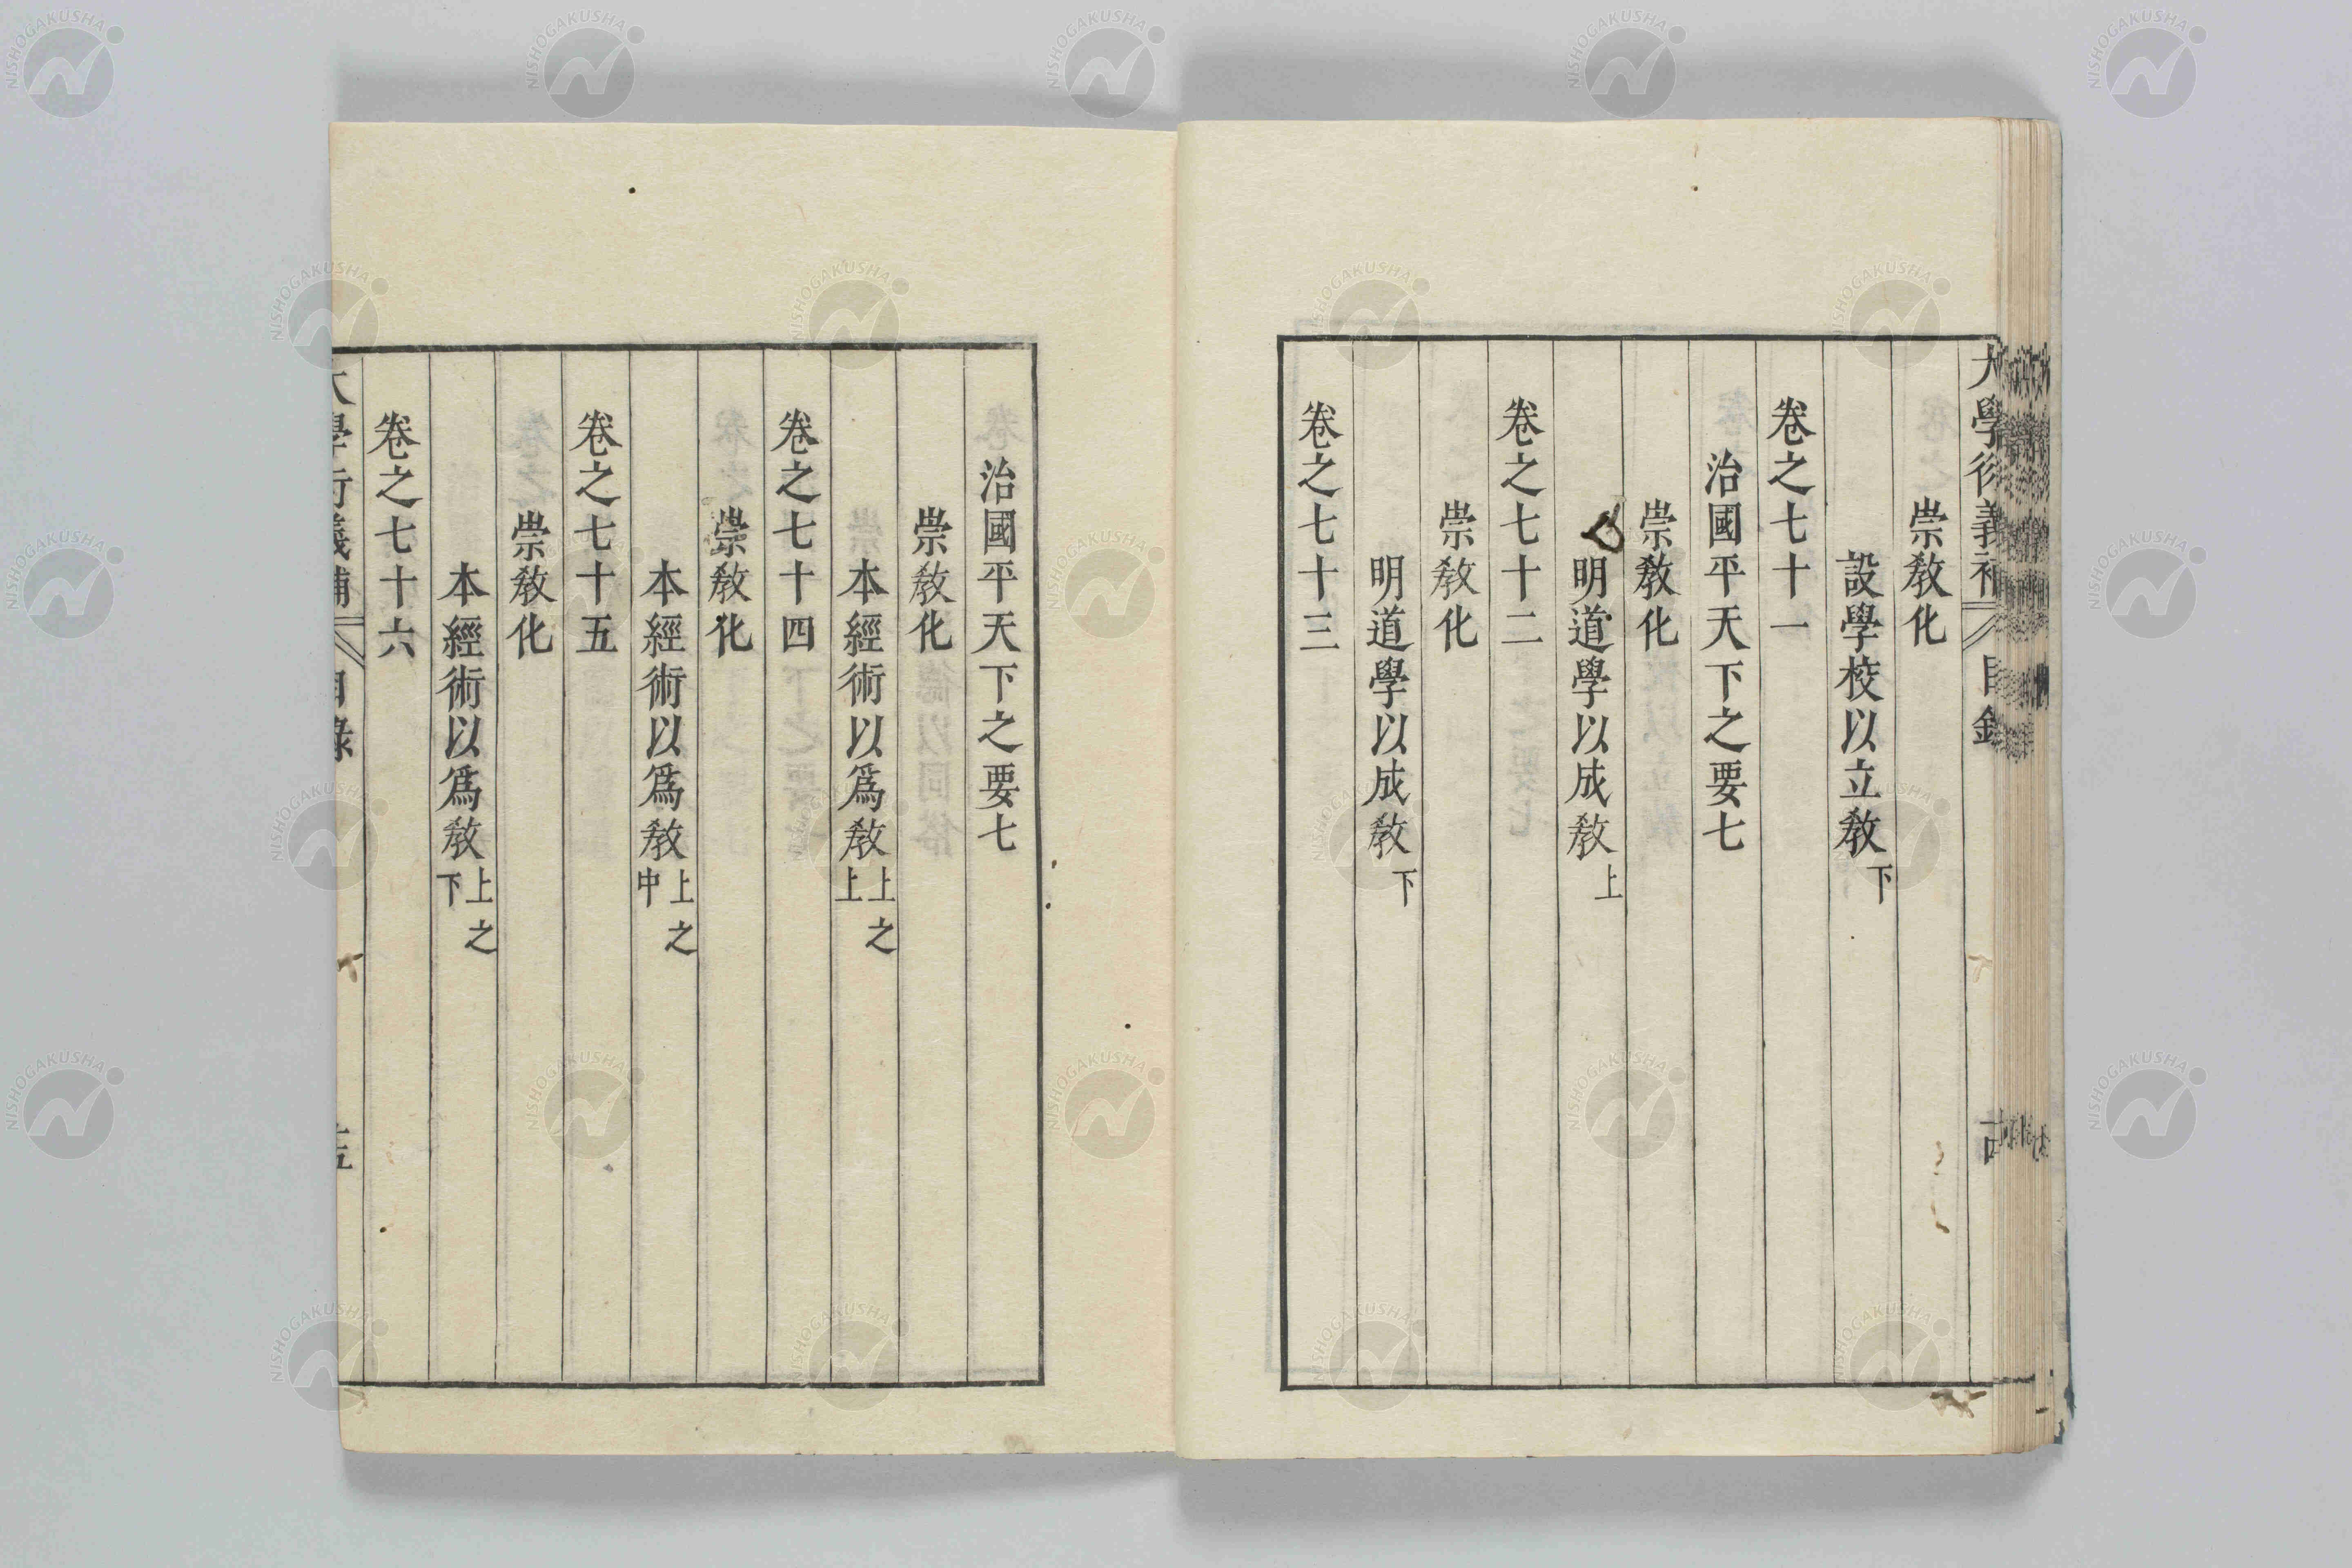 大學衍義補 目錄
崇敎化
設學校以立敎下
卷之七十一
治國平天下之要七
崇敎化
明道學以成敎上
卷之七十二
崇敎化
明道學以成敎下
卷之七十三
治國平天下之要七
崇敎化
本經術以爲敎上之上
卷之七十四
崇敎化
本經術以爲敎上之中
卷之七十五
崇敎化
本經術以爲敎上之下
卷之七十六
大學衍義補 目錄
NISHOGAKUSHA